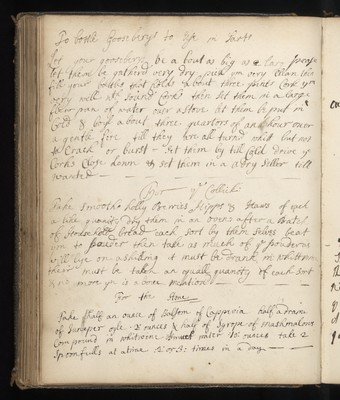 To bottle Gooseberys to use in Tarts
Let your gooseberys be a bout as big as a large pease
let them be gatherd very dry pick ym very clean then
fill your bottles that hold a bout three pints Cork ym
very well wth sound Corks then set them in a large
pan of water over a stove let them be put in
Cold & boyl a bout three quarters of an hour over
a gentle fire till they are all turnd white but not
to Crack or burst Set them by till Cold drive ye
Corks Close down & set them in a dry Seller till
wanted
For ye Collick
Take Smooth holly Berries Hipps & Haws of each
a like quanty dry them in an oven after a Batch
of Household bread each sort by them selves beat
ym to powder then take as much of ye powder as
will lye on a shilling it must be drank in whitwine
there must be taken an equall quanty of each sort
& no more yn is a bove mentioned
For the Stone
Take half an ounce of Balsom of Cappivia half a dram
of Juneper oyle 2 ounces & half of Syrope of Mashmalows
Compound in whitwine water 12 ounces take 2
Spoonfulls at a time 2 or 3 times in a day